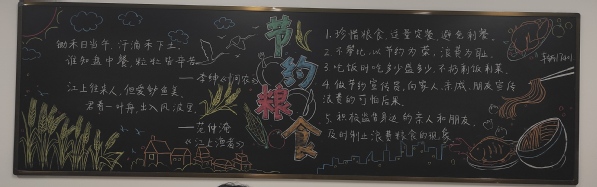 锄禾日当午，汗滴禾下土。
谁知盘中餐，粒粒皆辛苦
——李绅《悯农》
江上往来人，但爱鲈鱼美。
君看一叶舟，出入风波里。
——范仲淹
《江上渔者》
节约粮食
1. 珍惜粮食，适量定餐，避免剩餐。
2. 不攀比，以节约为荣，浪费为耻。
3. 吃饭时吃多少盛多少，不扔剩饭剩菜。
4. 做节约宣传员，向家人、亲戚、朋友宣传
浪费的可怕后果。
5. 积极监督身边的亲人和朋友，
及时制止浪费粮食的现象